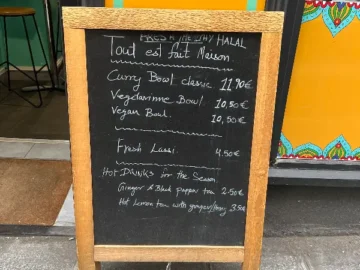 HALAL
Tout est fait Maison
Curry Bowl classic 11,90€
Vegetarienne Bowl 10,50€
Vegan Bowl 10,50€
Fresh Lassi 4.50€
Hot DRINKS for the Season
Ginger & Black pepper tea 2.50€
Hot Lemon tea with ginger/Honey 3.50